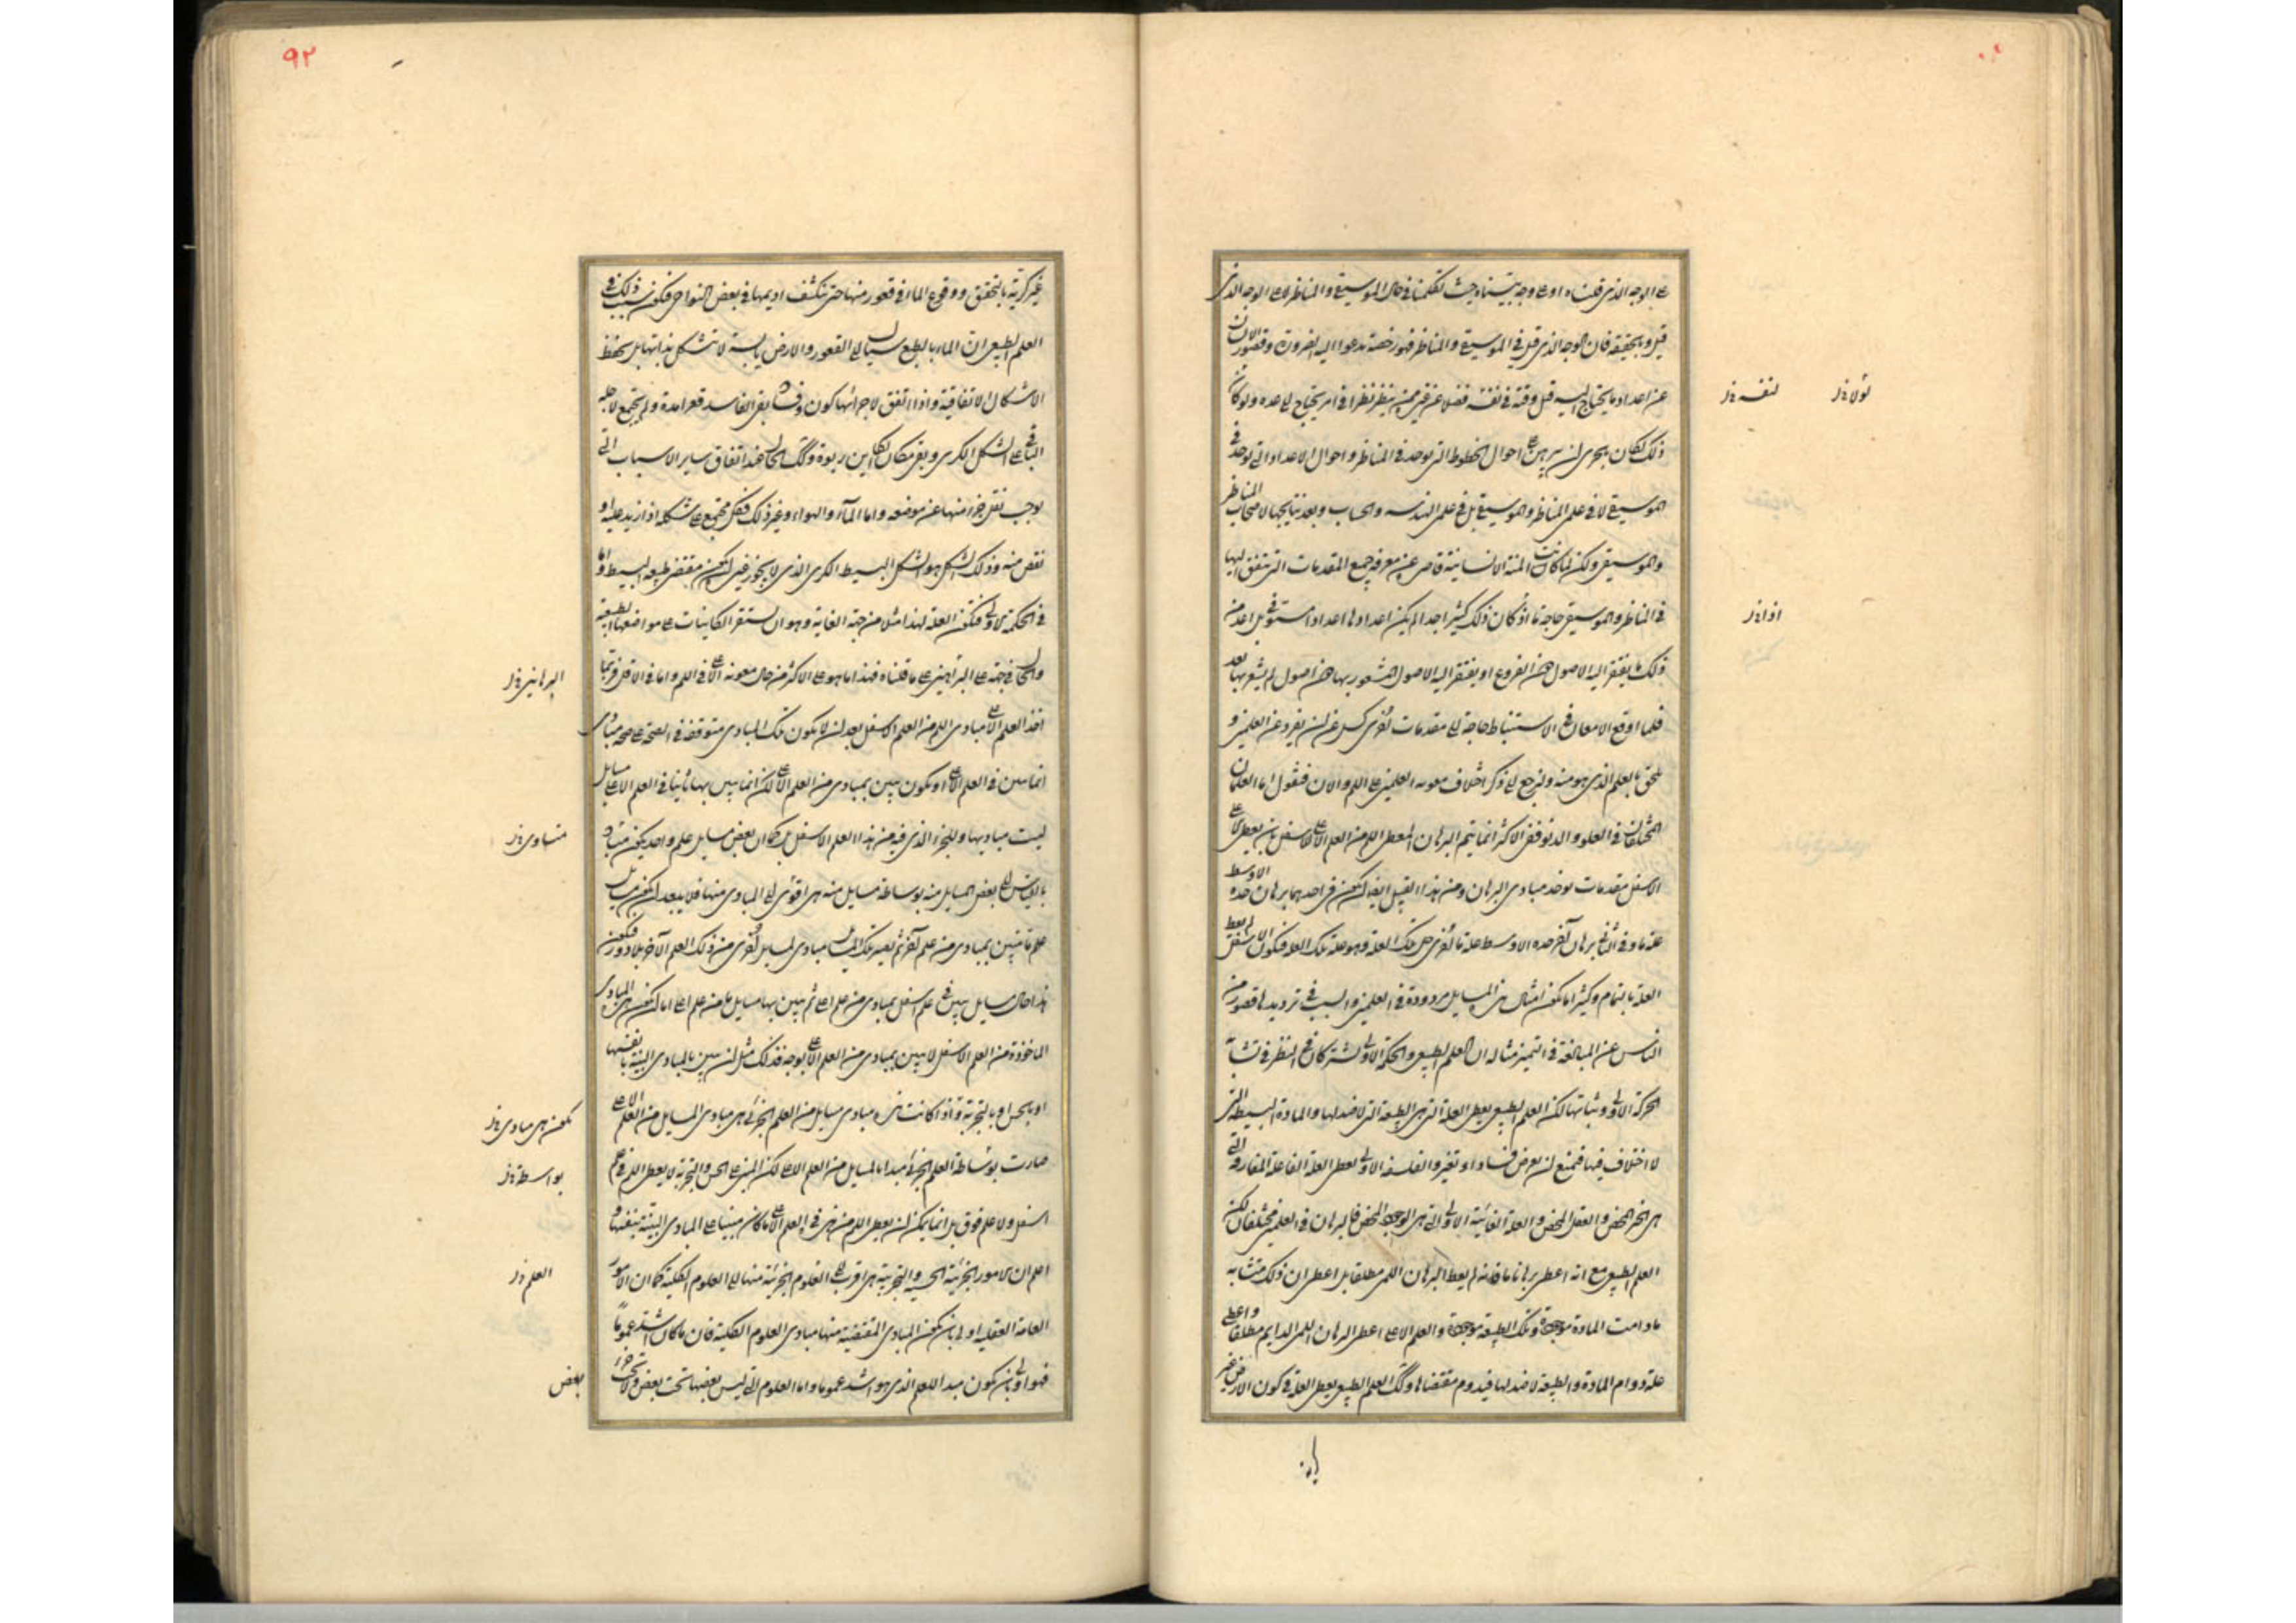 على الوجه الذى قلناه او على وجه بيناه حيث تكلمنا فى حال الموسيقى والمناظر لا على الوجه الذى
قيل وبالحقيقة فان الوجه الذى قيل فى الموسيقى والمناظر فهو رخصة تدعو اليه الضرورة وقصور الانسان
عن اعداد ما يحتاج اليه قبل وقته فى نفسه فضلا عن غيره ممن ينظر نظرا فى امر يحتاج الى عده ولو كان
ذلك لكان بالحرى ان يبرهن على احوال الخطوط التى توجد فى المناظر واحوال الاعداد التى توجد فى
الموسيقى لا فى علمى المناظر والموسيقى بل فى علم الهندسه والحساب وبعد نتايجها لاصحاب المناظر
والموسيقى ولكن لما كانت المنة الانسانية قاصرة عن معرفة جميع المقدمات التى يتفق اليها
فى المناظر والموسيقى حاجة ما اذ كان ذلك كثيرا جدا لم يكن اعدادها اعدادا مستوفى بل اعد من
ذلك ما يفتقر اليه الاصول هذه الفروع او يفتقر اليه الاصول المشعور بها هذه اصول لم يشعر بها بعد
فلما اوقع الامعان فى الاستنباط حاجة الى مقدمات اخرى كسل عن ان يفرد عن العلمين و
تلحق بالعلم الذى هو منه ولنرجع الى ذكر اختلاف معونة العلمين على اللم والان فنقول اما العلمان
المختلفان فى العلو والدنو ففى الاكثر انما يتم البرهان المعطى اللم من العلم الاعلى للاسفل بان يعطى الاعلى
الاسفل مقدمات توخذ مبادى البرهان ومن هذا القبيل ايضا ان يكون فى احدهما برهان حده الاوسط
علة ما وفى الثانى برهان آخر حده الاوسط علة ما اخرى قبل تلك العلة وهو علة تلك العلة فيكون الاسفل لم يعط
العلة بالتمام وكثيرا ما يكون امثال هذه المسايل مردودة فى العلمين والسبب فى ترديدها قصور من
الناس عن المبالغة فى التميز مثاله ان العلم الطبيعى والحكمة الاولى يشتركان فى النظر فى تشابه
الحركة الاولى وثباتها لكن العلم الطبيعى يعطى العلة التى هى الطبيعة التى لا ضد لها والمادة البسيطة التى
لا اختلاف فيها فيمتنع ان يعرض فساد او تغير والفلسفه الاولى يعطى العلة الفاعلة المفارقة التى
هى الخير المحض والعقل المحض والعلة الغائية الاولى التى هى الوجود المحض فالبرهان فى العلمين مختلفان لكن
العلم الطبيعى مع انه اعطى برهانا ما فانه لم يعط البرهان اللمى مطلقا بل اعطى ان ذلك متشابه
ما دامت المادة موجودة وتلك الطبيعة موجودة والعلم الاعلى اعطى البرهان اللمى الدايم مطلقا واعطى
علة دوام المادة والطبيعة لا ضد لها فيدوم مقتضاها وكذلك العلم الطبيعى يعطى العلة فى كون الارض غير
لولا ن
لنفسه ن
اذا ن
٩٢
غير كرية بالتحقيق ووقوع الماء فى قعور منها حتى تنكشف اديمها فى بعض النواحى فيكون سبب ذلك فى
العلم الطبيعى ان الماء بالطبع سيال الى القعور والارض يابسة لا تتشكل بذاتها بل يحفظ
الاشكال الاتفاقية واذا اتفق لاجزائها كون وفساد بقى الفاسد قعرا عدة ولم يجتمع لاجله
الباقى على الشكل الكرى وبقى مكان الكاين ربوة وكذلك الحال عند اتفاق ساير الاسباب التى
يوجب نقل جزء منها عن موضعه واما الماء والهواء وغير ذلك فكل مجتمع على شكله اذا زيد عليه او
نقص منه وذلك الشكل هو الشكل البسيط الكرى الذى لا يجوز غيره ان يكون مقتضى طبيعة البسيط واما
فى الحكمة الاولى فتكون العلة لهذا مثلا من جهة الغاية وهو ان يستقر الكاينات على مواضعها الطبيعة
والحال فى جهة على البراهين على ما قلناه فهذا ما هو على الاكثر من حال معونة الاعلى فى اللم واما فى الاقل فربما
اخذ العلم الاعلى مبادى اللم من العلم الاسفل بعد ان لا يكون تلك المبادى متوقفة فى الصحة على صحة مبادى
انما تبين فى العلم الاعلى او يكون تبين بمبادى من العلم الاعلى لكن انما تبين بها ثانيا فى العلم الاعلى مسايل
ليست مباديها وللجزء الذى فيه من هذا العلم الاسفل بل كما ان بعض مسايل علم واحد يكون مبادى
بالقياس الى بعض المسايل منه بوساطة مسايل منه هى اقرب الى المبادى منها فلا يبعد ان يكون مسايل
علم ما تبين بمبادى من علم آخر ثم يصير تلك المسايل مبادى لمسايل اخرى من ذلك العلم الآخر بلا دور فيكون
هذا حال مسايل تبين فى علم اسفل بمبادى من علم اعلى ثم تبين بها مسايل ما من علم اعلى اما ان يكون هى المبادى
الماخوذة من العلم الاسفل لا تبين بمبادى من العلم الاعلى بوجه فذلك مثل ان تبين بالمبادى البينة بانفسها
او بالحس او بالتجربة واذا كانت هذه مبادى مسايل من العلم الجزئى هى مبادى المسايل من العلم الاعلى
صارت بوساطة العلم الجزئى مبدا لمسايل من العلم الاعلى لكن المبنى على الحس والتجربة لا يعطى اللم فى علم
اسفل ولا علم فوق بل انما يمكن ان يعطى اللم من هذه فى العلم الاعلى ما كان مبينا على المبادى البينة بنفسها و
اعلم ان الامور الجزئية الحسية والتجربية هى اقرب الى العلوم الجزئية منها الى العلوم الكلية كما ان الامور
العامة العقلية اولى بان يكون المبادى المقتضية منها مبادى العلوم الكلية فان ما كان اشد عموما
فهو اولى بان يكون مبدا للعلم الذى هو اشد عموما واما العلوم التى ليس بعضها تحت بعض ولا تحت جزء
البراهين ن
متساوى ن
تكون هى مبادى ن
بواسطة ن
العلم ن
بعض